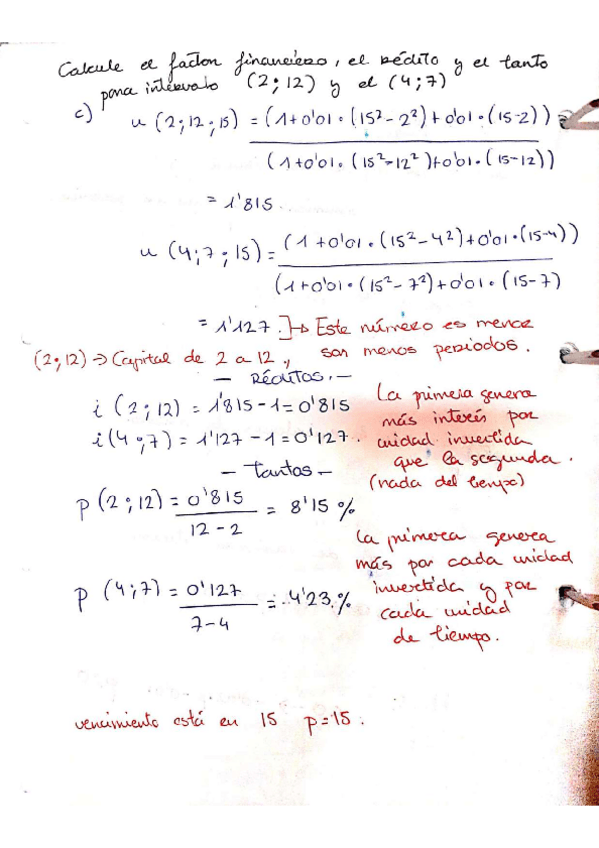 Calcule el factor financiero, el rédito y el tanto
para intervalo (2;12) y el (4;7)
c) u (2;12;15) = (1+0'01·(15²-2²)+0'01·(15-2))
(1+0'01·(15²-12²)+0'01·(15-12))
= 1'815.
u (4;7;15) = (1+0'01·(15²-4²)+0'01·(15-4))
(1+0'01·(15²-7²)+0'01·(15-7)
= 1'127.]→ Este número es menor
(2;12) → Capital de 2 a 12, son menos periodos.
- Réditos.-
i (2;12) = 1'815-1=0'815
i (4;7) = 1'127-1=0'127.
La primera genera
más interés por
unidad invertida
que la segunda.
(nada del tiempo)
- Tantos -
p (2;12) = 0'815 = 8'15 %
12-2
p (4;7) = 0'127 = 4'23.%
7-4
La primera genera
más por cada unidad
invertida y por
cada unidad
de tiempo.
vencimiento está en 15 p=15.